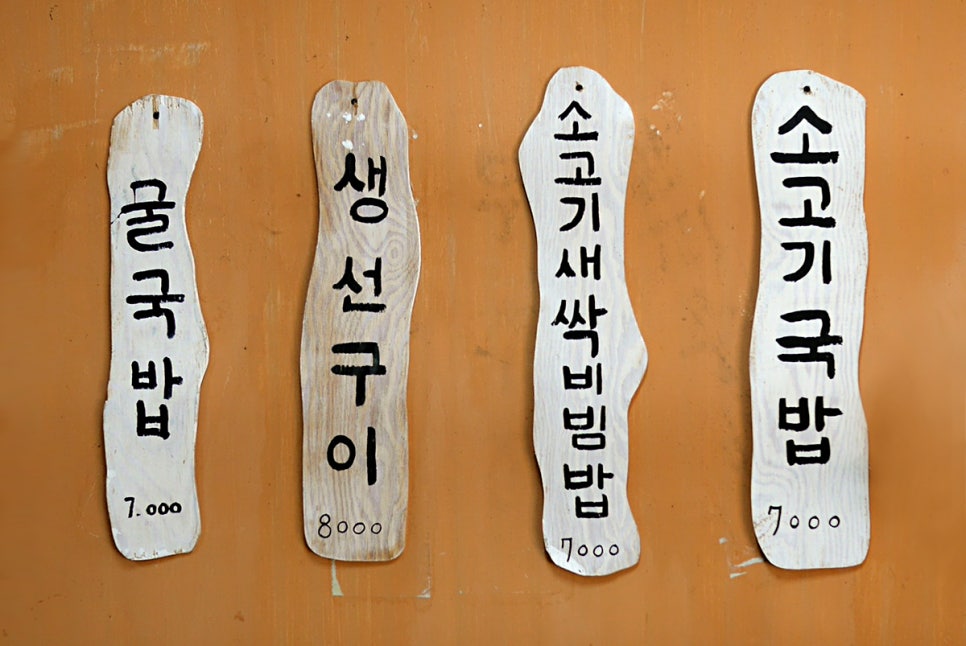 굴국밥
7.000
생선구이
8000
소고기새싹비빔밥
7000
소고기국밥
7000